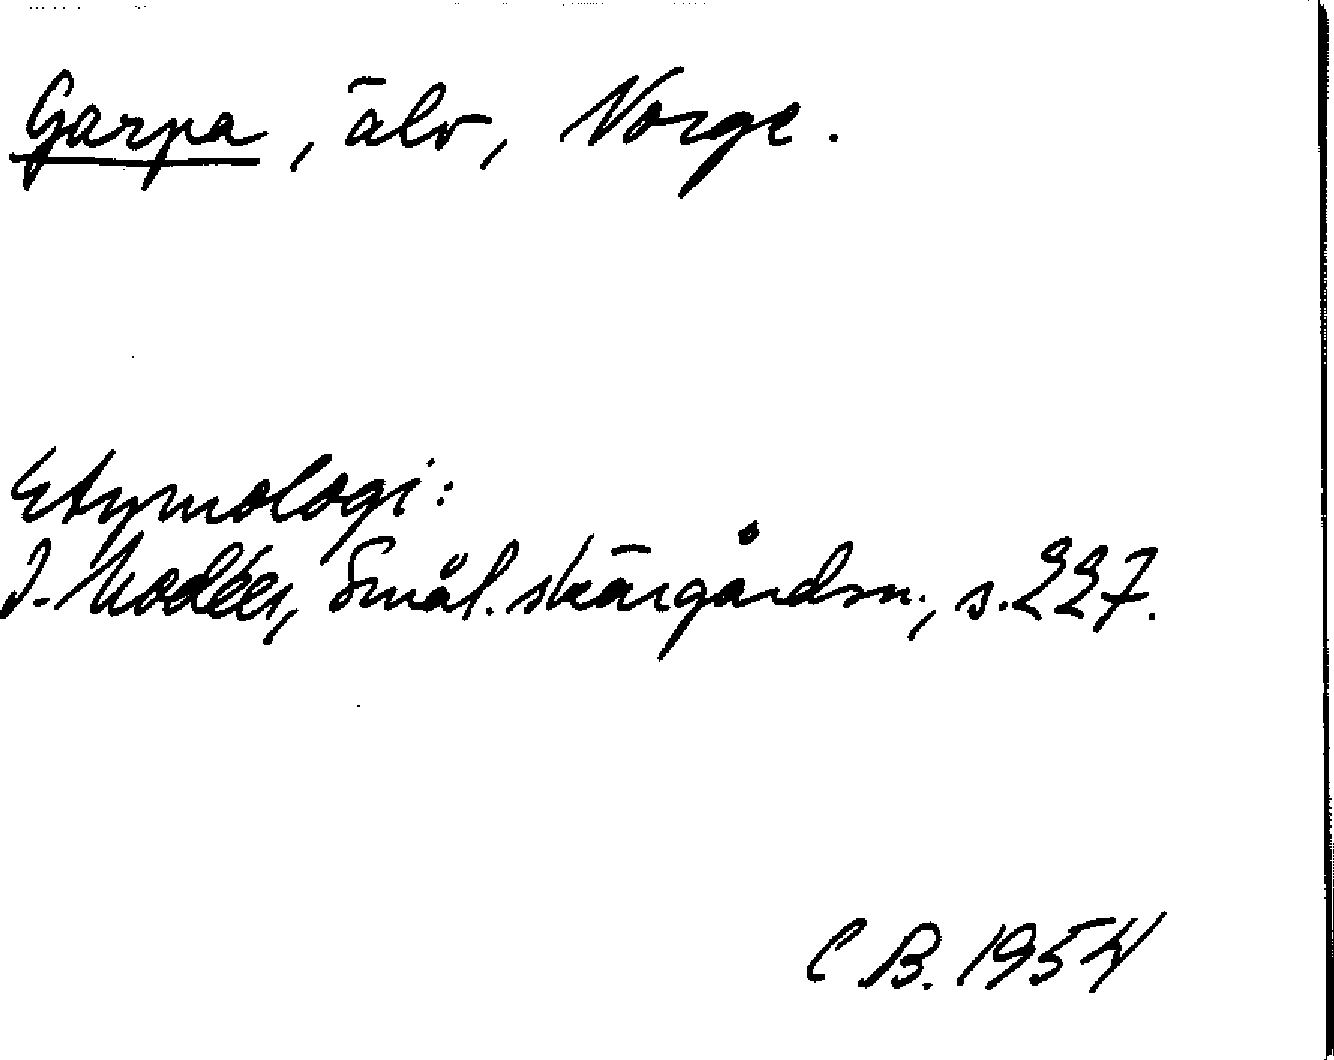 Garpa, älv, Norge.
Etymologi:
I. Modéer, Smål. skärgårdsn., s. 227.
C B. 1954